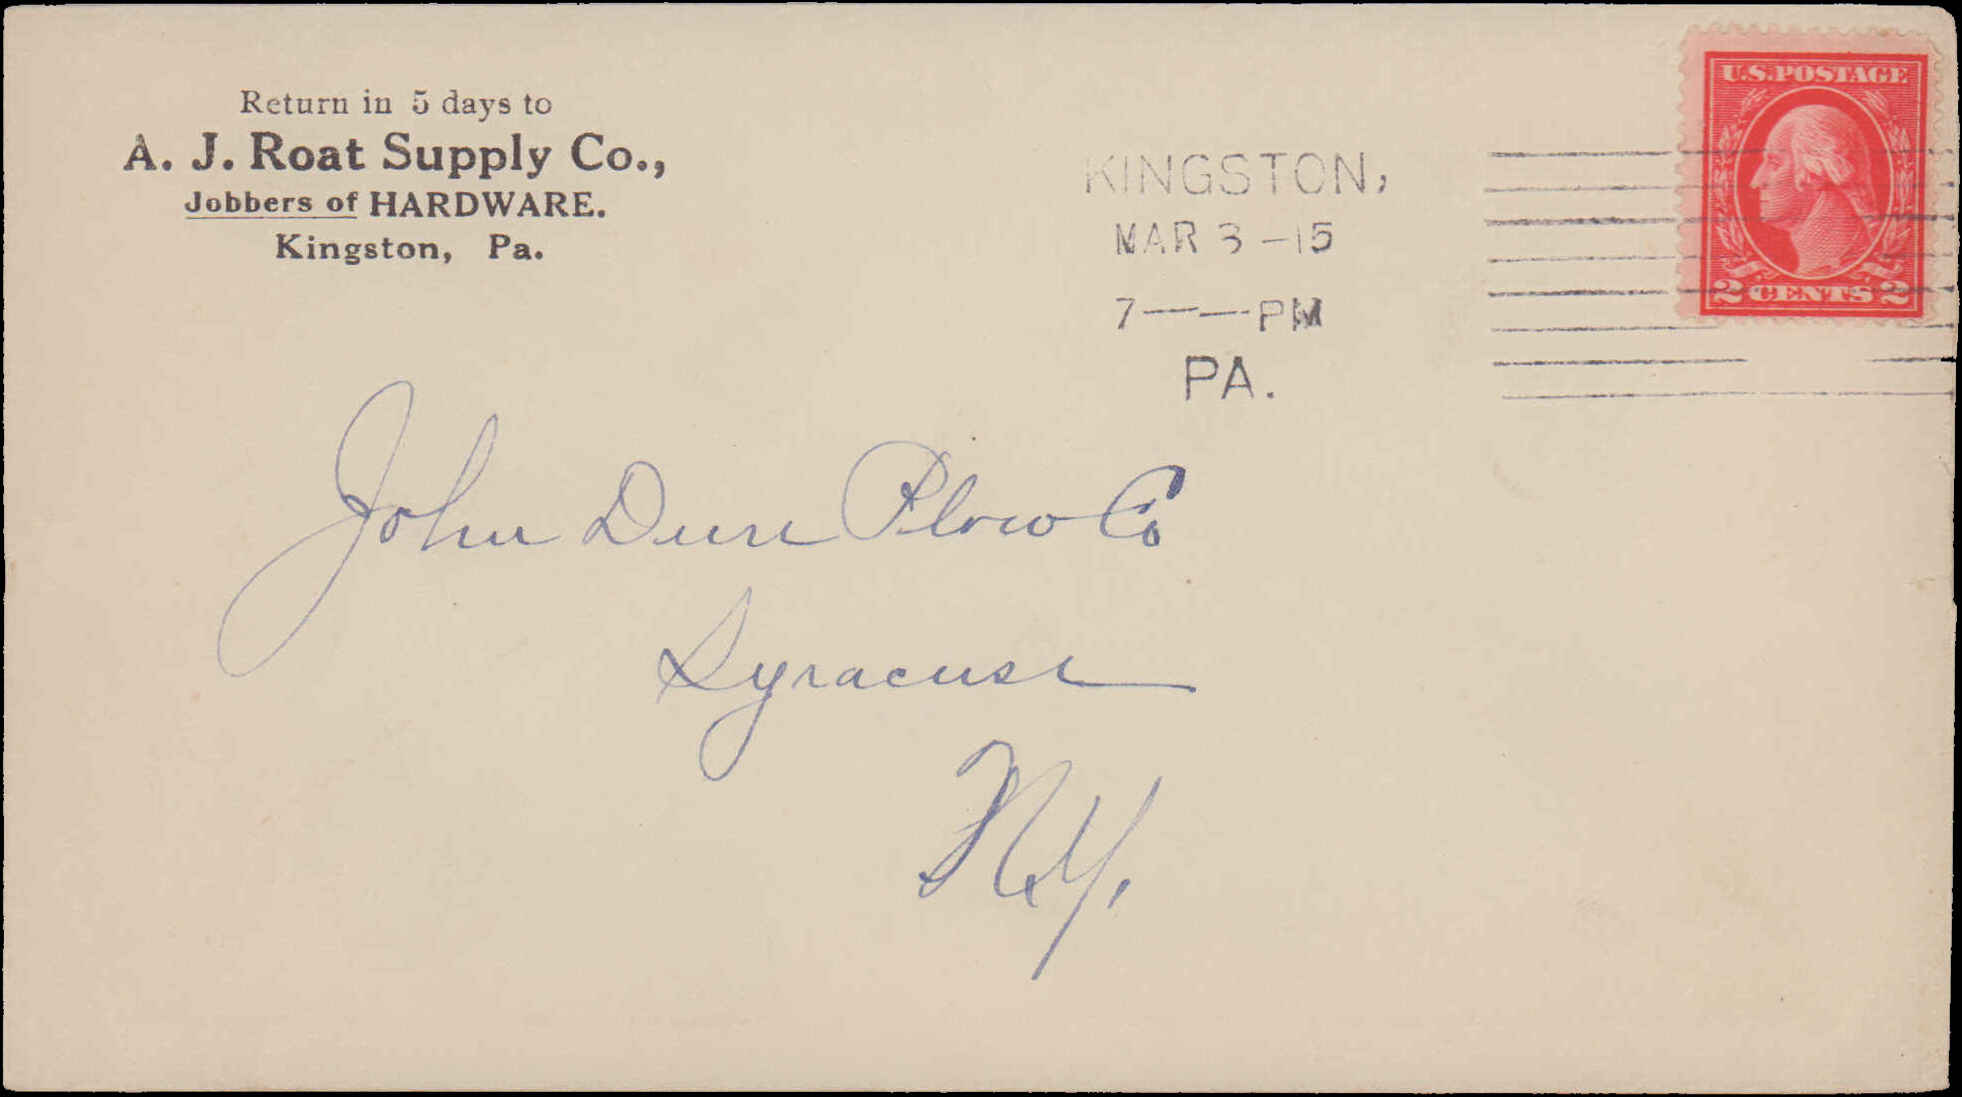 Return in 5 days to
A. J. Roat Supply Co.,
Jobbers of HARDWARE.
Kingston, Pa.
KINGSTON,
MAR 3 -15
7 — — PM
PA.
U.S. POSTAGE
2 CENTS 2
John Deere Plow Co
Syracuse
N.Y.